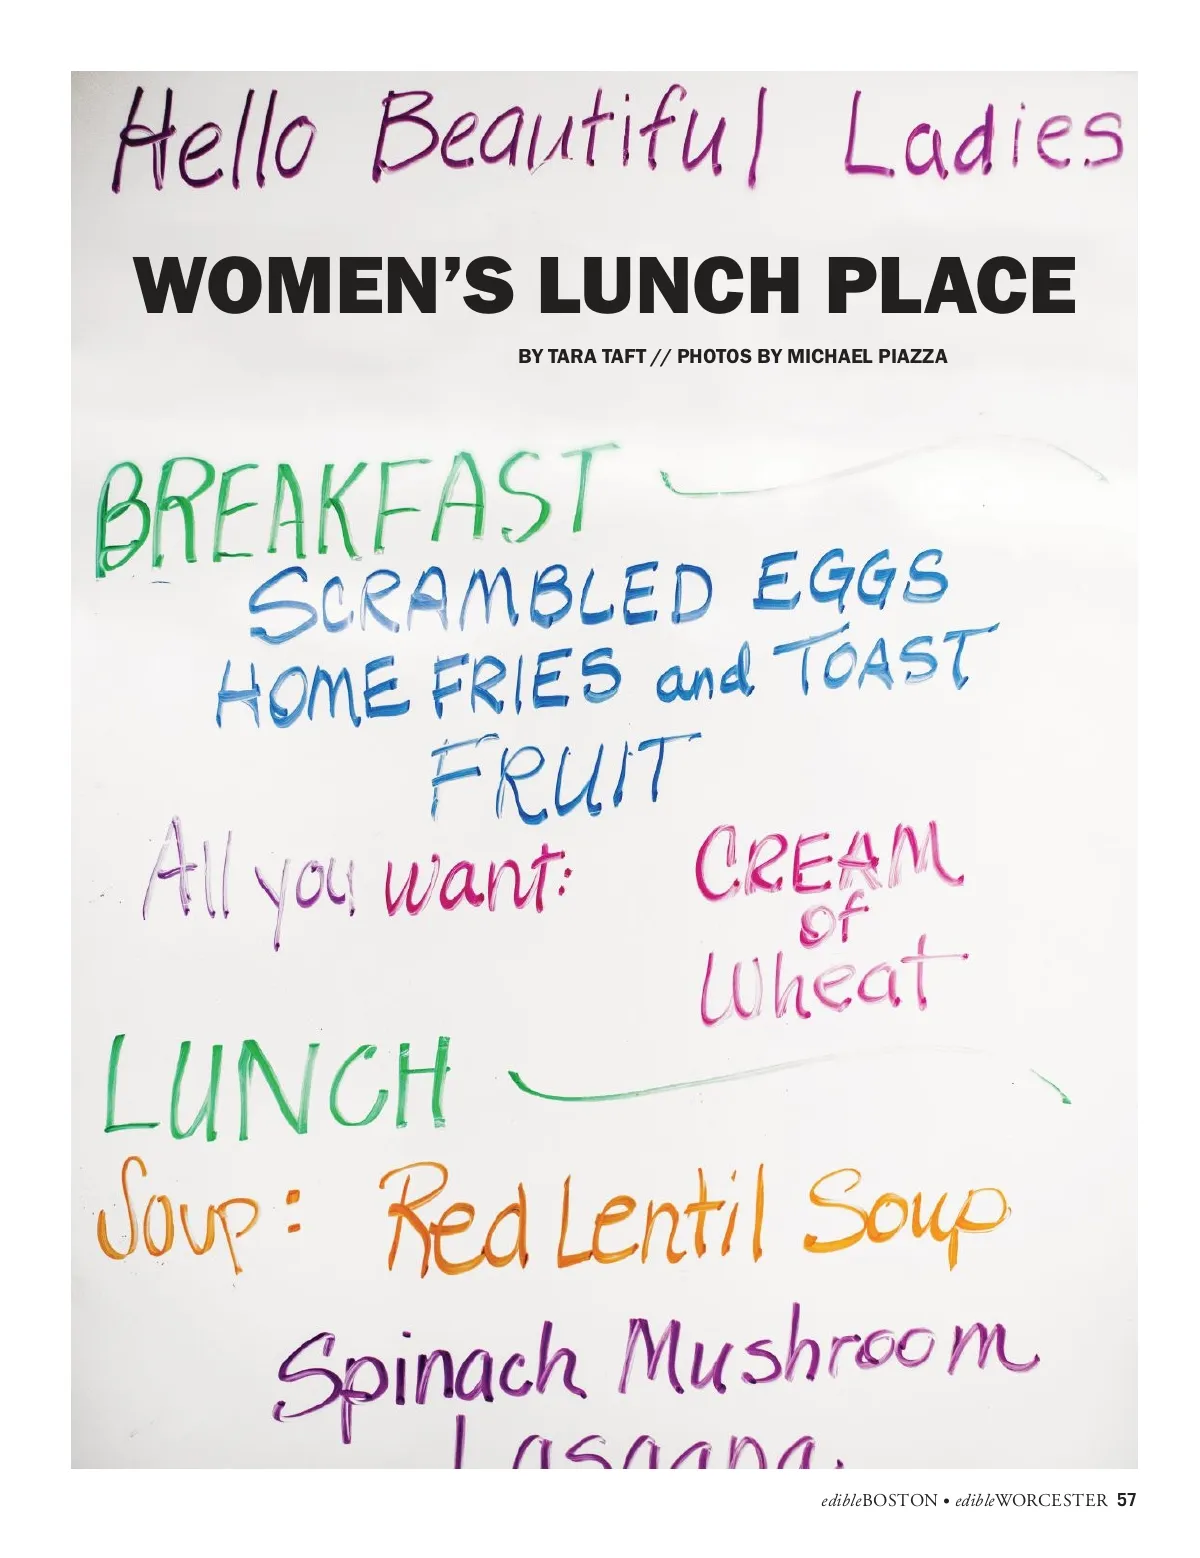 Hello Beautiful Ladies
WOMEN'S LUNCH PLACE
BY TARA TAFT // PHOTOS BY MICHAEL PIAZZA
BREAKFAST
SCRAMBLED EGGS
HOME FRIES and TOAST
FRUIT
All you want: CREAM
of
Wheat
LUNCH
Soup: Red Lentil Soup
Spinach Mushroom
Lasagna
edibleBOSTON • edibleWORCESTER 57